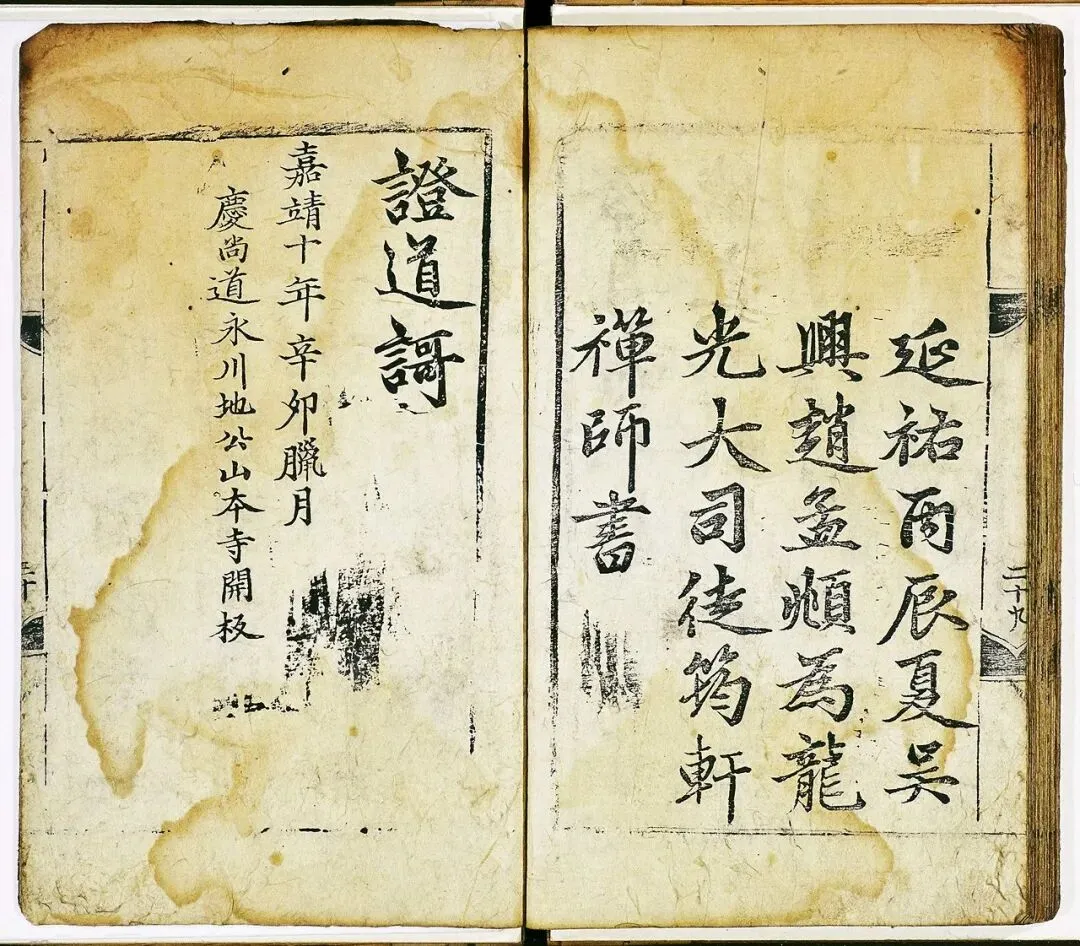 二十九
延祐丙辰夏吳
興趙孟頫為龍
光大司徒筠軒
禪師書
證道謌
嘉靖十年辛卯臘月
慶尚道永川地公山本寺開板